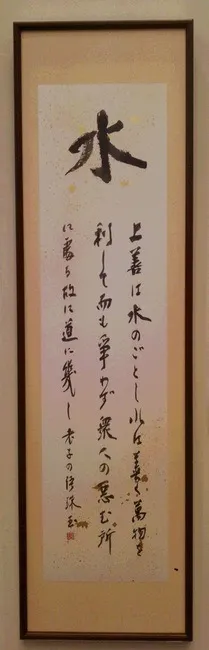 水
上善は水のごとし水は善く萬物を
利して而も爭わず衆人の悪む所
に處る故に道に幾し老子の